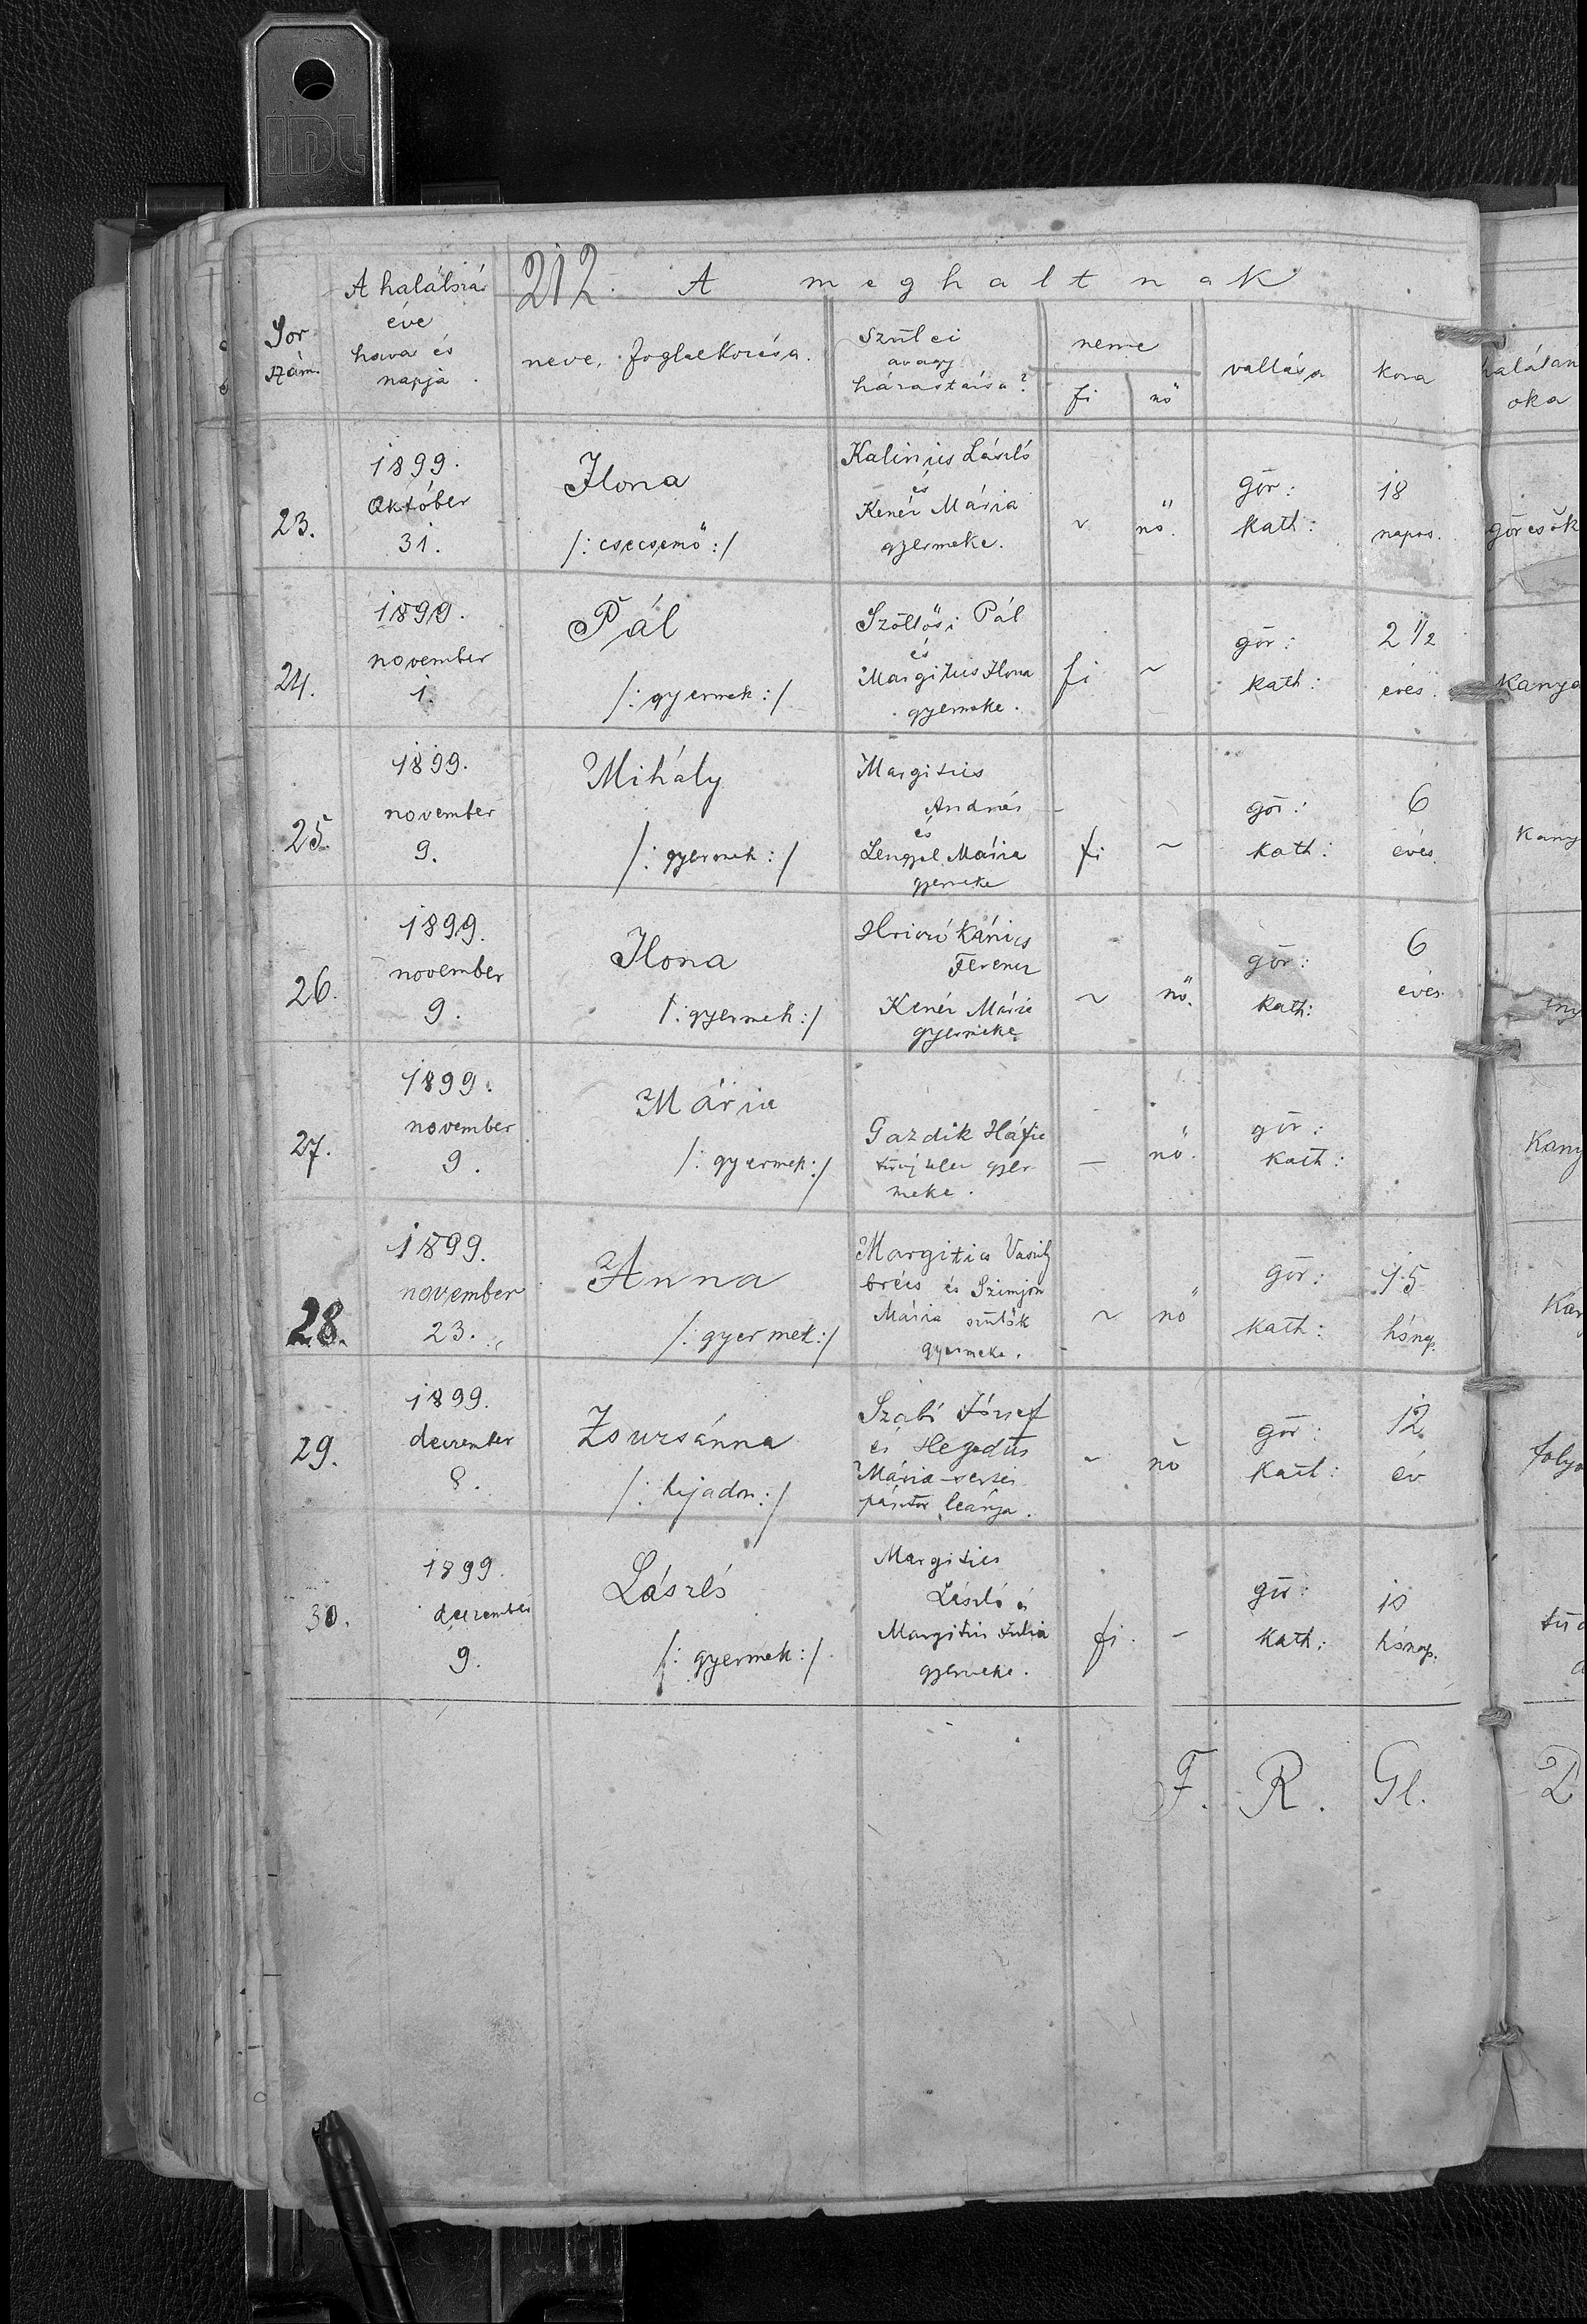 IDL
212.
A meghaltnak
A halálozás
éve
hava és
napja
Sor
szám.
neve, foglalkozása.
Szülei
avagy
házastársa?
neme
fi
nő
vallása
kora
halálán
oka
23.
1899.
Október
31.
Ilona
/: csecsemő :/
Kalinics László
és
Kenéz Mária
gyermeke.
~
nő.
gör:
kath:
18
napos.
görcsök
24.
1899.
november
1.
Pál
/: gyermek :/
Szöllősi Pál
és
Margitics Ilona
gyermeke.
fi
~
gör:
kath:
2 1/2
éves.
Kanya
25.
1899.
november
9.
Mihály
/: gyermek :/
Margitics
András
és
Lengyel Mária
gyermeke
fi
~
gör:
kath:
6
éves.
Kany
26.
1899.
november
9.
Ilona
/: gyermek :/
Ferencz
Kenéz Mária
gyermeke
~
nő.
gör:
kath:
6
éves.
27.
1899.
november
9.
Mária
/: gyermek :/
Gazdik Háfia
gyer
meke.
—
nő.
gör:
kath:
Kany
28.
1899.
november
23.
Anna
/: gyermek :/
Margitics Vaszily
és Szimjon
Mária szülők
gyermeke.
~
nő
gör:
kath:
15
hónap.
Kan
29.
1899.
deczember
8.
Zsuzsánna
/: hajadon :/
Szabó József
és Hegedüs
Mária
pásztor leánya.
~
nő
gör:
kath:
12
év
folyo
30.
1899.
deczember
9.
László
/: gyermek :/
Margitics
László és
Margitics Julia
gyermeke.
fi.
-
gör:
kath:
10
hónap.
tüd
F. R. Gl.